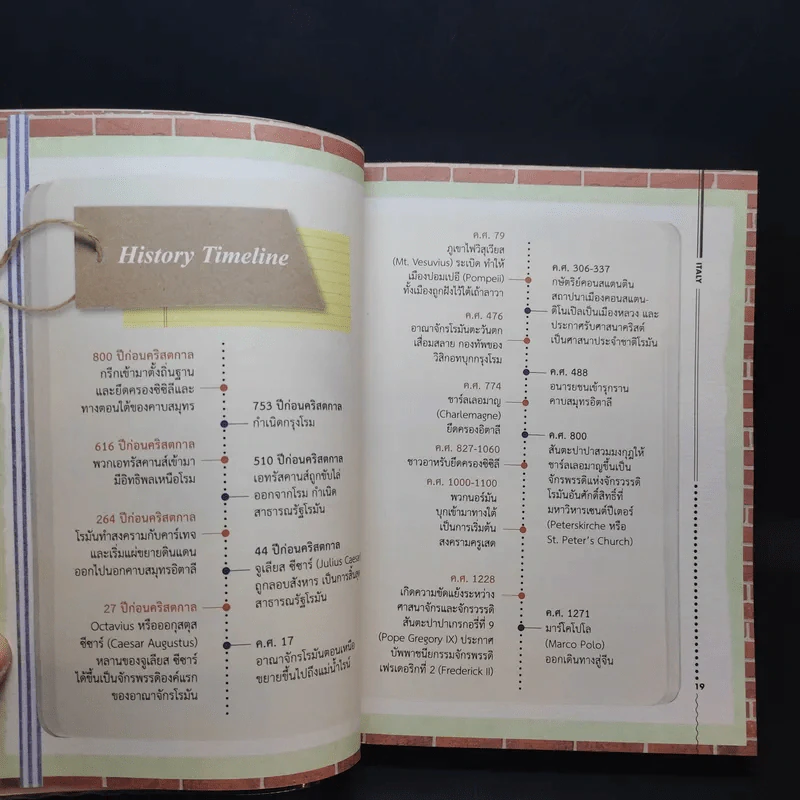 History Timeline
800 ปีก่อนคริสตกาล
กรีกเข้ามาตั้งถิ่นฐาน
และยึดครองซิซิลีและ
ทางตอนใต้ของคาบสมุทร
753 ปีก่อนคริสตกาล
กำเนิดกรุงโรม
616 ปีก่อนคริสตกาล
พวกเอทรัสคานส์เข้ามา
มีอิทธิพลเหนือโรม
510 ปีก่อนคริสตกาล
เอทรัสคานส์ถูกขับไล่
ออกจากโรม กำเนิด
สาธารณรัฐโรมัน
264 ปีก่อนคริสตกาล
โรมันทำสงครามกับคาร์เทจ
และเริ่มแผ่ขยายดินแดน
ออกไปนอกคาบสมุทรอิตาลี
44 ปีก่อนคริสตกาล
จูเลียส ซีซาร์ (Julius Caesar)
ถูกลอบสังหาร เป็นการสิ้นสุด
สาธารณรัฐโรมัน
27 ปีก่อนคริสตกาล
Octavius หรือออกุสตุส
ซีซาร์ (Caesar Augustus)
หลานของจูเลียส ซีซาร์
ได้ขึ้นเป็นจักรพรรดิองค์แรก
ของอาณาจักรโรมัน
ค.ศ. 17
อาณาจักรโรมันตอนเหนือ
ขยายขึ้นไปถึงแม่น้ำไรน์
ค.ศ. 79
ภูเขาไฟวิสุเวียส
(Mt. Vesuvius) ระเบิด ทำให้
เมืองปอมเปอี (Pompeii)
ทั้งเมืองถูกฝังไว้ใต้เถ้าลาวา
ค.ศ. 306-337
กษัตริย์คอนสแตนติน
สถาปนาเมืองคอนสแตน-
ติโนเปิลเป็นเมืองหลวง และ
ประกาศรับศาสนาคริสต์
เป็นศาสนาประจำชาติโรมัน
ค.ศ. 476
อาณาจักรโรมันตะวันตก
เสื่อมสลาย กองทัพของ
วิสิกอทบุกกรุงโรม
ค.ศ. 488
อนารยชนเข้ารุกราน
คาบสมุทรอิตาลี
ค.ศ. 774
ชาร์ลเลอมาญ
(Charlemagne)
ยึดครองอิตาลี
ค.ศ. 800
สันตะปาปาสวมมงกุฎให้
ชาร์ลเลอมาญขึ้นเป็น
จักรพรรดิแห่งจักรวรรดิ
โรมันอันศักดิ์สิทธิ์ที่
มหาวิหารเซนต์ปีเตอร์
(Peterskirche หรือ
St. Peter's Church)
ค.ศ. 827-1060
ชาวอาหรับยึดครองซิซิลี
ค.ศ. 1000-1100
พวกนอร์มัน
บุกเข้ามาทางใต้
เป็นการเริ่มต้น
สงครามครูเสด
ค.ศ. 1228
เกิดความขัดแย้งระหว่าง
ศาสนาจักรและจักรวรรดิ
สันตะปาปาเกรกอรีที่ 9
(Pope Gregory IX) ประกาศ
บัพพาชนียกรรมจักรพรรดิ
เฟรเดอริกที่ 2 (Frederick II)
ค.ศ. 1271
มาร์โคโปโล
(Marco Polo)
ออกเดินทางสู่จีน
ITALY
19